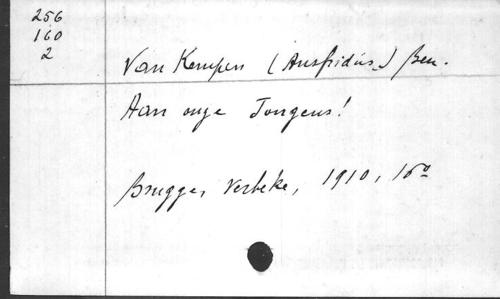 256
160
2
Van Kempen (Ansfridus) Ben.
Aan onze Jongens!
Brugge, Verbeke, 1910, 16º